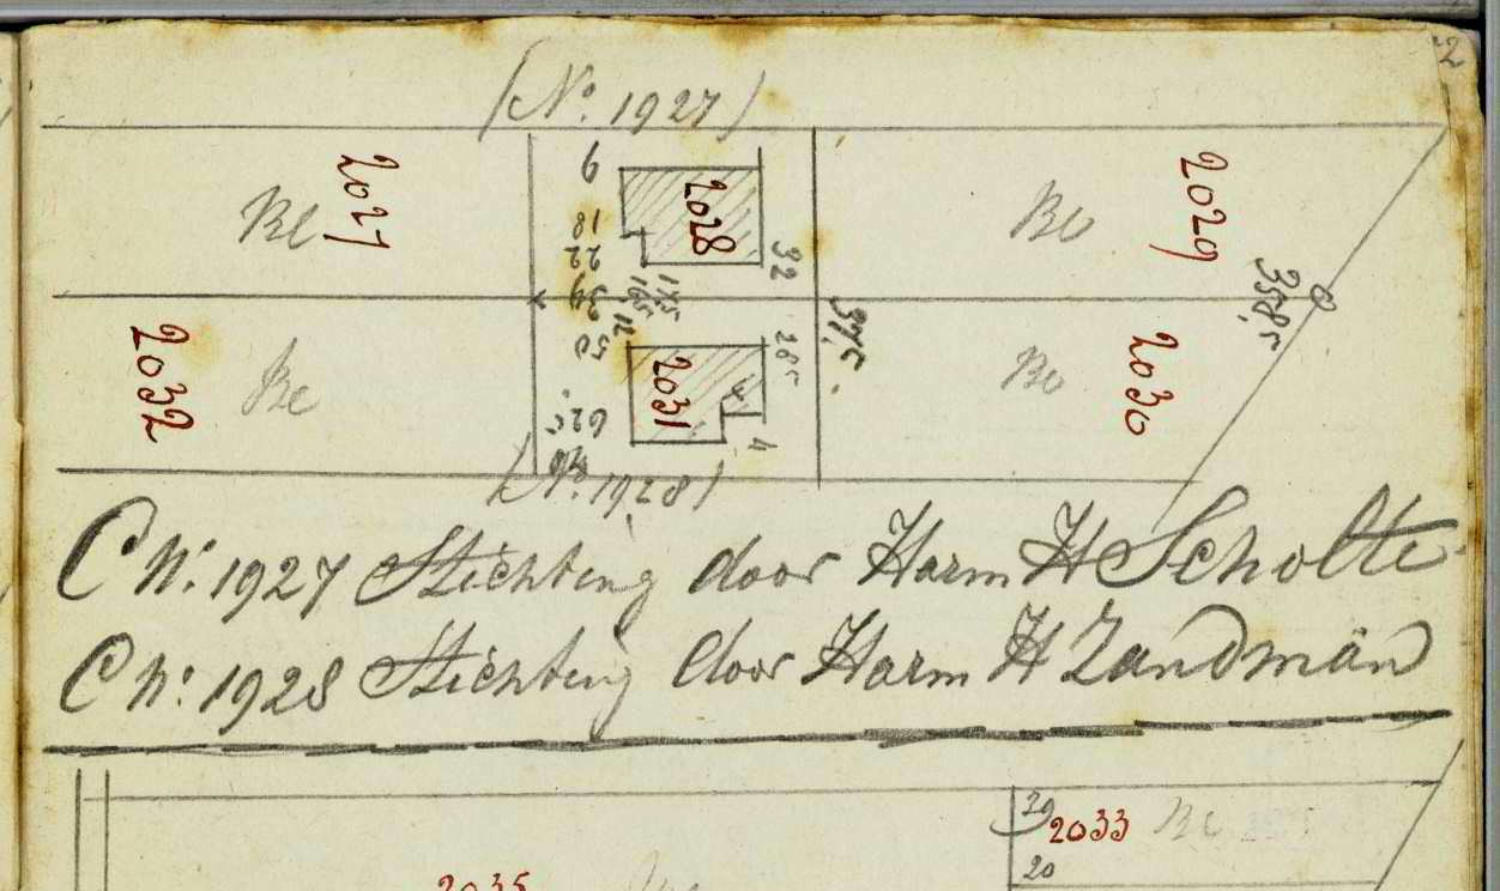 (No. 1927)
2027
Be
9
18
22
34
50
62,5
2028
32
16,5
17,5
12
28,5
37,5
Bo
2029
358,5
2032
Be
2031
3
4
Bo
2030
(No. 1928)
C No. 1927 Stichting door Harm H Scholte
C No. 1928 Stichting door Harm H Zandman
2033
20
2035